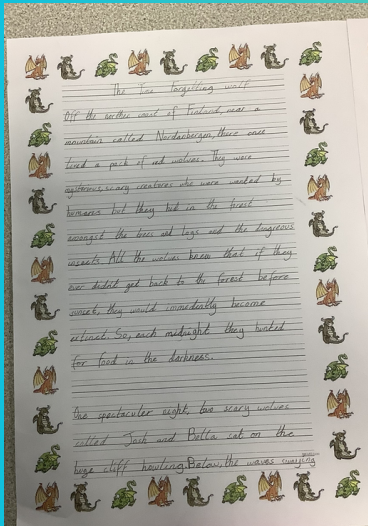 The Ice Forgetting wolf
Off the norther coast of Finland, near a
mountain called Nordenbergen, there once
lived a pack of red wolves. They were
mysterious, scary creatures who were wanted by
humans but they hid in the forest
amongst the trees and logs and the dangerous
insects. All the wolves knew that if they
ever didn't get back to the forest before
sunset, they would immediently become
extinct. So, each midnight they hunted
for food in the darkness.
One spectacular night, two scary wolves
called Jack and Bella sat on the
huge cliff howling. Below, the waves swaying